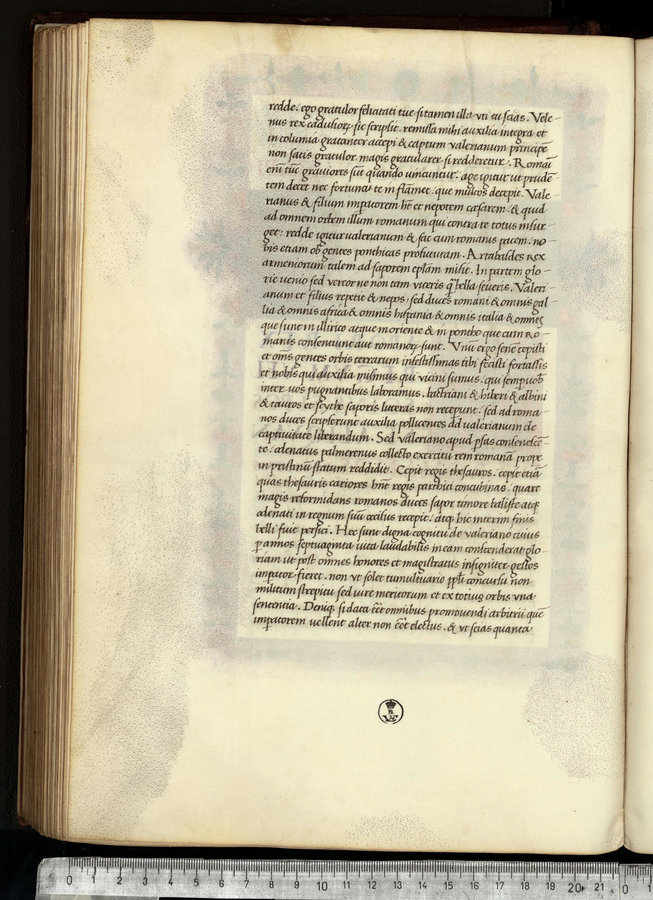 redde. ego gratulor felicitati tue si tamen illa uti tu scias. Vele-
nus rex cadusiorꝝ sic scripsit. remissa mihi auxilia integra et
incolumia gratanter accepi & captum valerianum principē
non satis gratulor magis gratularer si redderetur. Romāi
eni tūc grauiores sūt quando uincuntur. age igitur ut prudē-
tem decet nec fortuna te inflāmet. que multos decepit. Vale-
rianus & filium imꝑatorem hēt et nepotem cæsarem. & quid
ad omnem orbem illum romanum qui contra te totus insur-
get: redde igitur valerianum & fac cum romanis pacem. no-
bis etiam ob gentes ponthicas profuturam. Artabasdes rex
armeniorum talem ad saporem eplam misit. In partem glo-
rie uenio sed uereor ne non tam viceris q̄ bella seueris. Valeri-
anum et filius repetit & nepos. sed duces romani & omnis gal-
lia & omnis africa & omnis hispania & omnis italia & omnes
que sunt in illirico atque in oriente & in pontho que cum ro-
manis consentiunt aut romanorꝝ sunt. Vnū ergo senē cepisti
et om̄s gentes orbis terrarum infestissimas tibi fecisti fortassis
et nobis qui auxilia misimus qui vicini sumus. qui semp uob
inter uos pugnantibus laboramus. bactriani & hiberi & albini
& tauros et scythe saporis litteras non receperunt. sed ad roma-
nos duces scripserunt auxilia pollicentes ad valerianum de
captiuitate liberandum. Sed valeriano apud psas consenescē-
te. odenatus palmerenus collecto exercitu rem romanā prope
in pristinū statum reddidit. Cepit regis thesauros. cepit etiā
quas thesauris cariores hnt regis parthici concubinas. quare
magis reformidans romanos duces sapor timore baliste atqꝫ
odenati in regnum suū ocilus recepit. atqꝫ hic interim finis
belli fuit persici. Hec sunt digna cognitu de valeriano cuius
p annos septuaginta uita laudabilis in eam conscenderat glo-
riam ut post omnes honores et magistratus insigniter gestos
imꝑator fieret. non ut solet tumultuario ppli concursu non
militum strepitu sed iure meritorum et ex totius orbis vna
sententia. Deniqꝫ si data eēt omnibus promouendi arbitrii quē
imꝑatorem uellent alter non eēt electus. & vt scias quanta
0 1 2 3 4 5 6 7 8 9 10 11 12 13 14 15 16 17 18 19 20 21 0 1